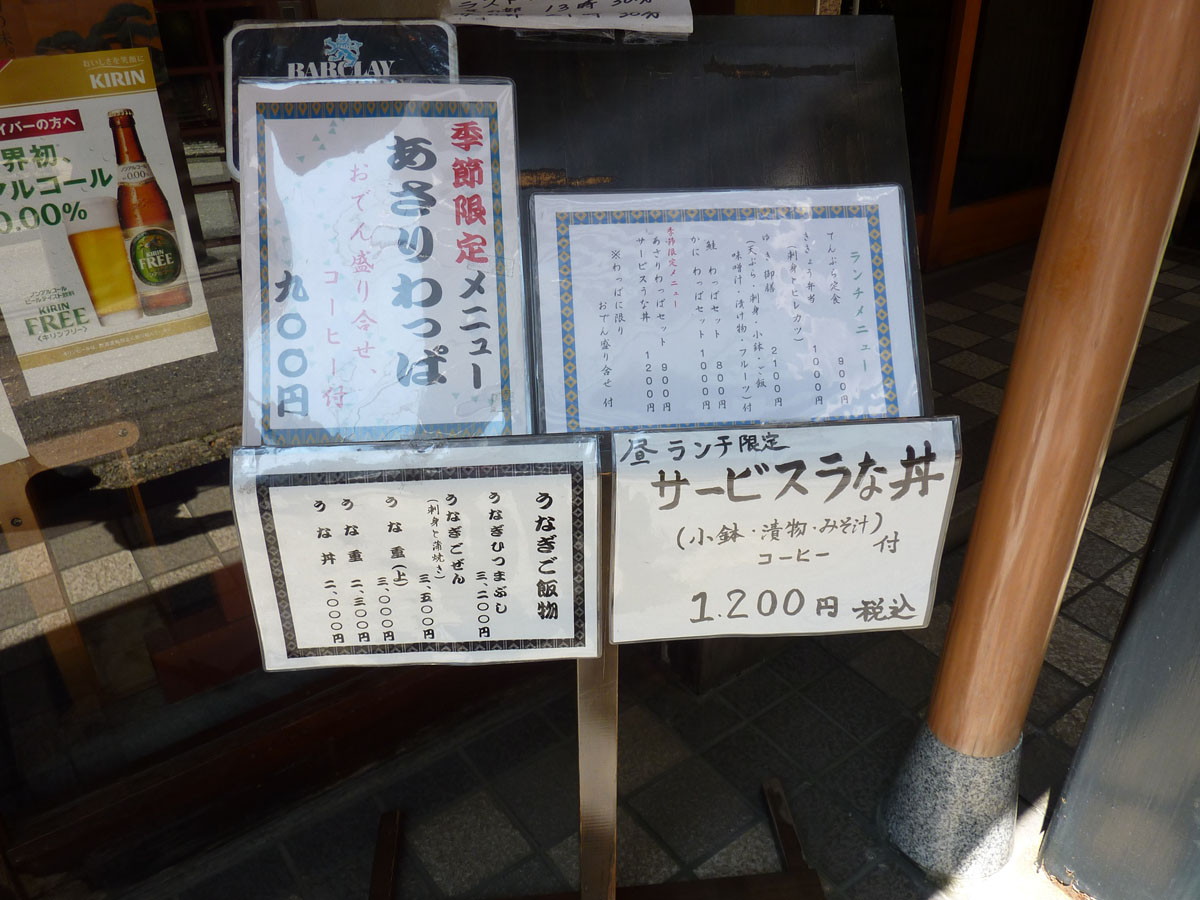 13時30分
BARCLAY
おいしさを笑顔に
KIRIN
イバーの方へ
界初、
アルコール
0.00%
ノンアルコール
ビールテイスト飲料
KIRIN
FREE
<キリンフリー>
KIRIN
FREE
季節限定メニュー
あさりわっぱ
おでん盛り合せ、
コーヒー付
九〇〇円
ランチメニュー
てんぷら定食 900円
ききょう弁当 1000円
(刺身とヒレカツ)
ゆき御膳 2100円
(天ぷら・刺身・小鉢・ご飯
味噌汁・漬け物・フルーツ)付
鮭 わっぱセット 800円
かに わっぱセット 1000円
季節限定メニュー
あさりわっぱセット 900円
サービスうな丼 1200円
※わっぱに限り
おでん盛り合せ 付
うなぎご飯物
うなぎひつまぶし 三、二〇〇円
うなぎごぜん 三、五〇〇円
(刺身と蒲焼き)
うな重(上) 三、〇〇〇円
うな重 二、三〇〇円
うな丼 二、〇〇〇円
昼 ランチ限定
サービスうな丼
(小鉢・漬物・みそ汁)
コーヒー 付
1.200円 税込